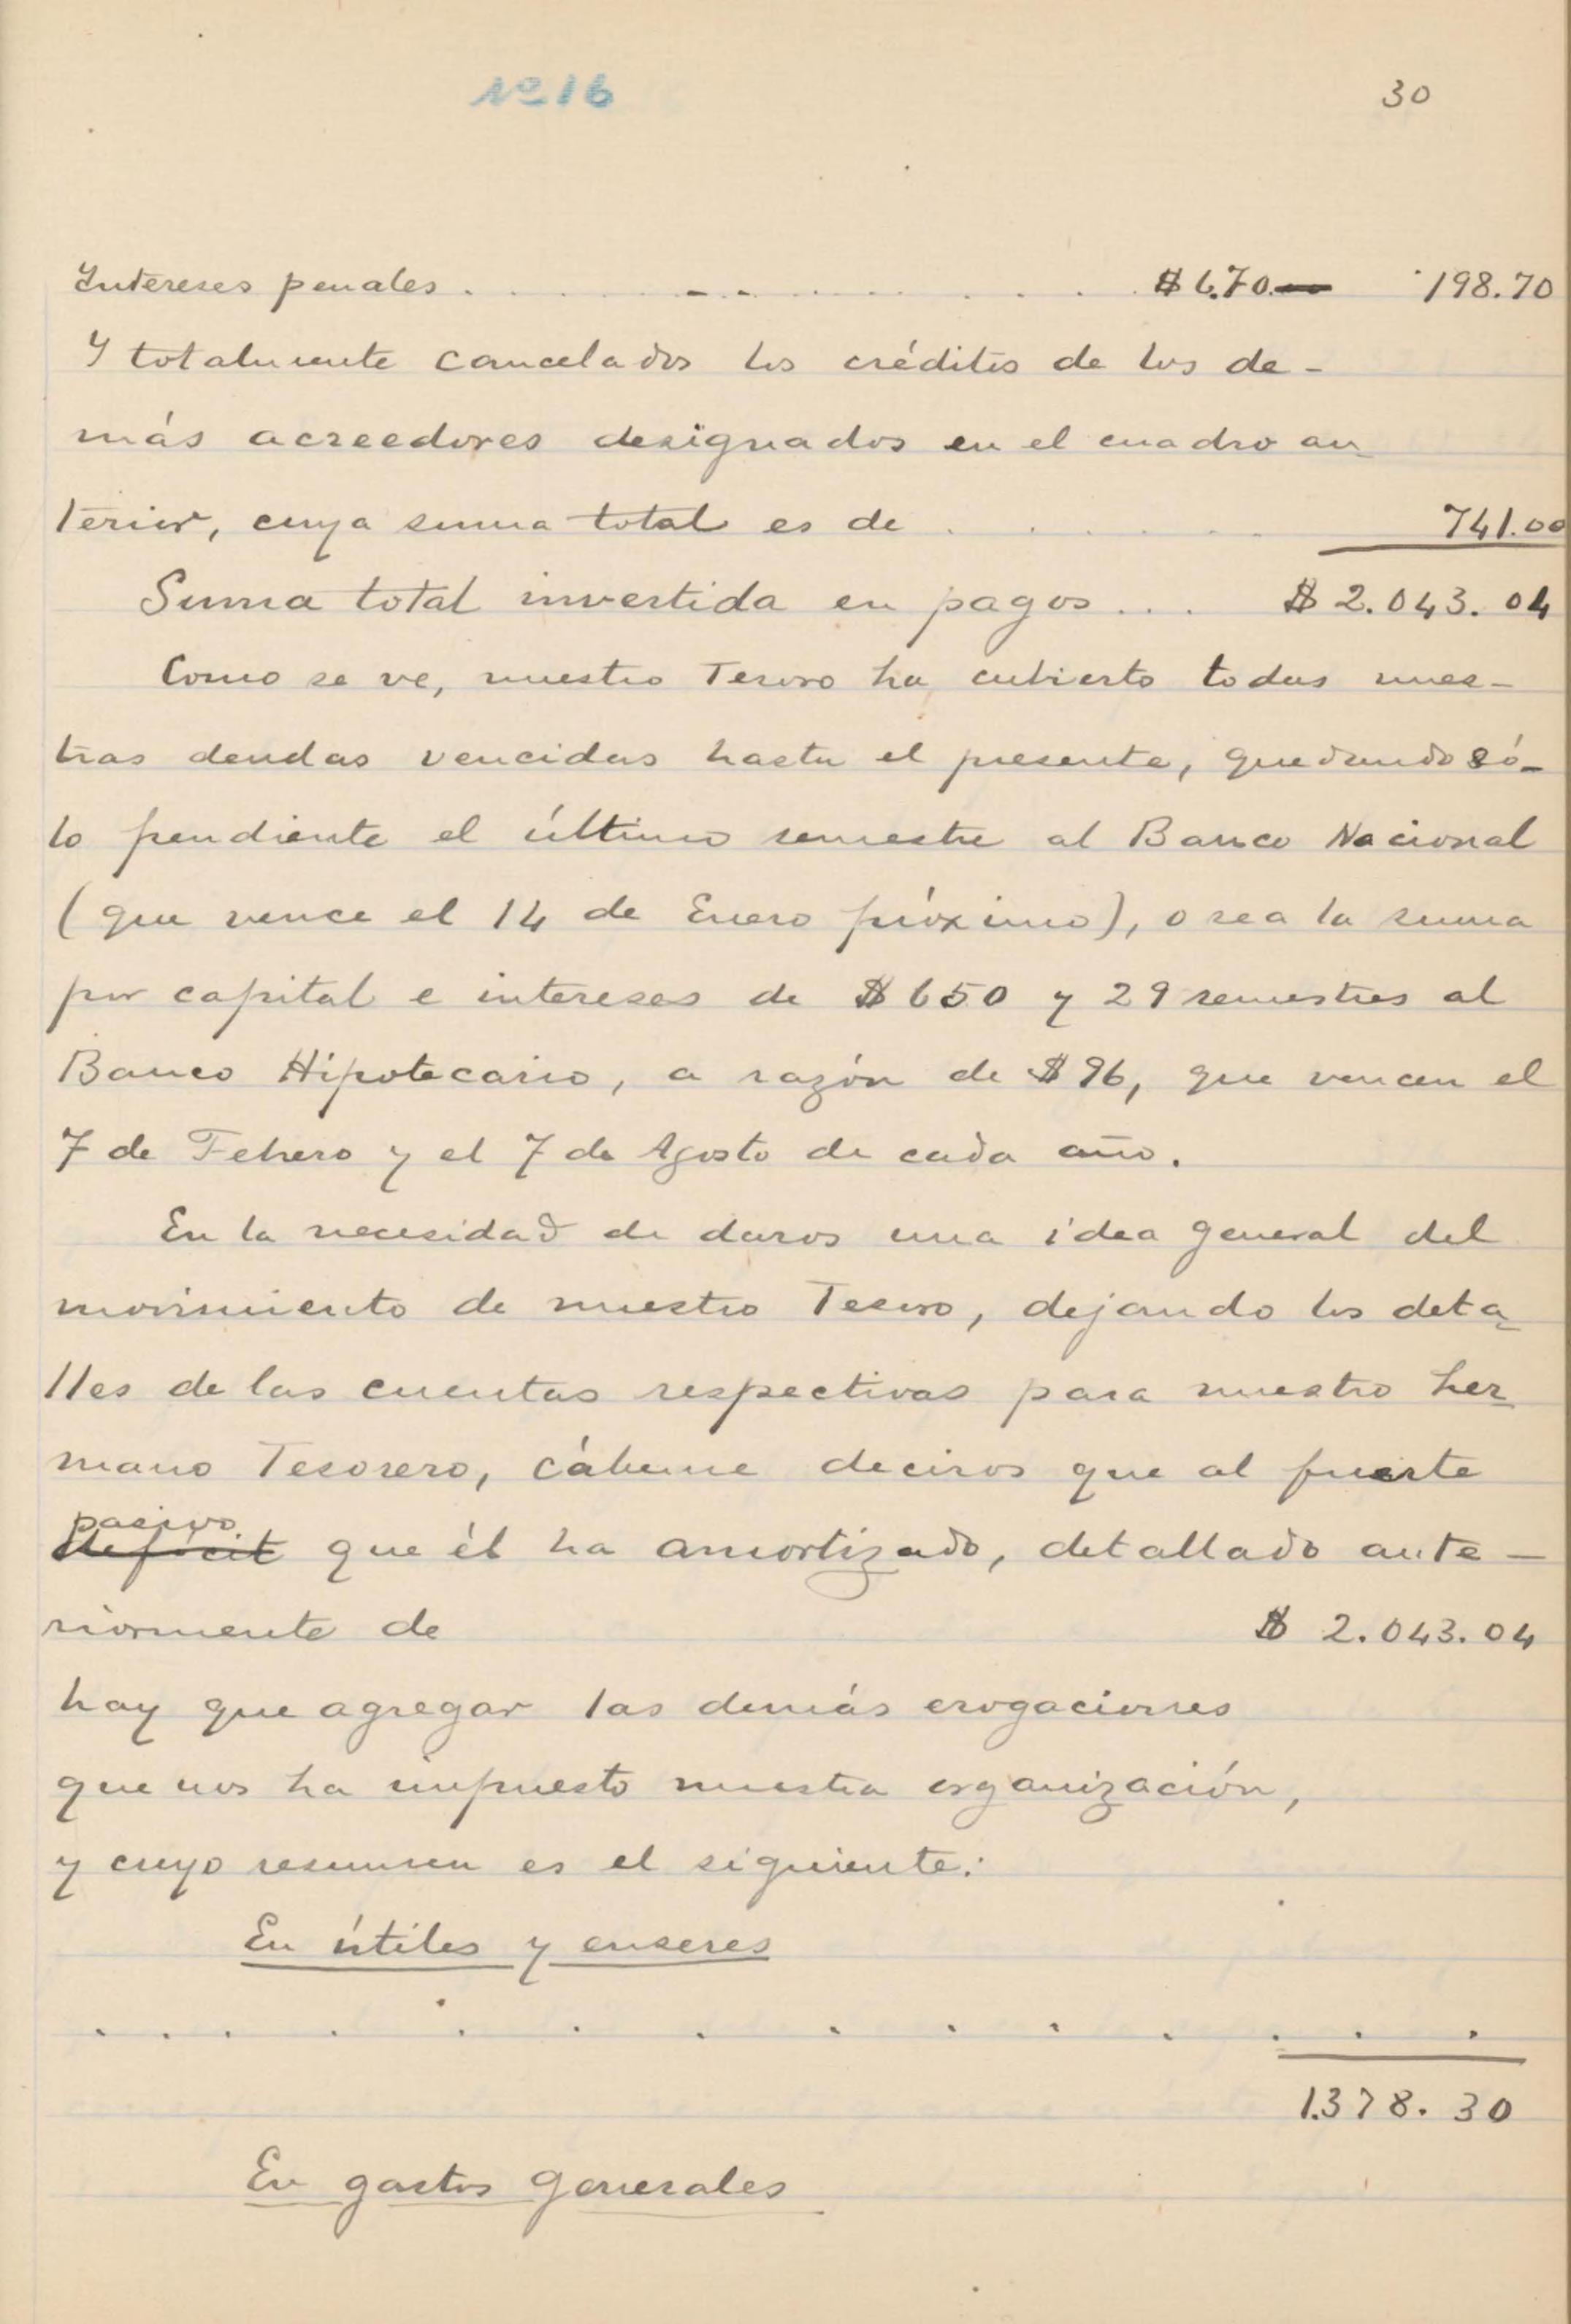 Nº 16
30
Intereses penales . . . . . . . . . . . $ 6.70.— 198.70
Y totalmente cancelados los créditos de los de-
más acreedores designados en el cuadro an-
terior, cuya suma total es de . . . . . 741.00
Suma total invertida en pagos . . . $ 2.043.04
Como se ve, nuestro Tesoro ha cubierto todas nues-
tras deudas vencidas hasta el presente, quedando só-
lo pendiente el último semestre al Banco Nacional
(que vence el 14 de Enero próximo), o sea la suma
por capital e intereses de $ 650 y 29 semestres al
Banco Hipotecario, a razón de $ 96, que vencen el
7 de Febrero y el 7 de Agosto de cada año.
En la necesidad de daros una idea general del
movimiento de nuestro Tesoro, dejando los deta-
lles de las cuentas respectivas para nuestro her-
mano Tesorero, cábeme deciros que al fuerte
pasivo
deficit que él ha amortizado, detallado ante-
riormente de $ 2.043.04
hay que agregar las demás erogaciones
que nos ha impuesto nuestra organización,
y cuyo resumen es el siguiente:
En útiles y enseres
. . . . . . . . . . . . . .
1.378.30
En gastos generales